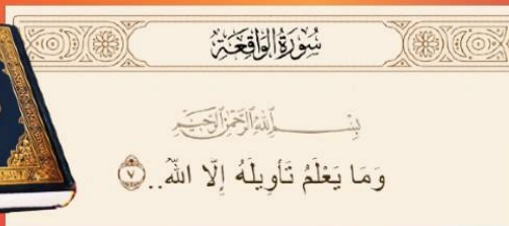 سُورَةُ الْوَاقِعَةِ
بِسْمِ اللَّهِ الرَّحْمَٰنِ الرَّحِيمِ
وَمَا يَعْلَمُ تَأْوِيلَهُ إِلَّا اللَّهُ.. ٧